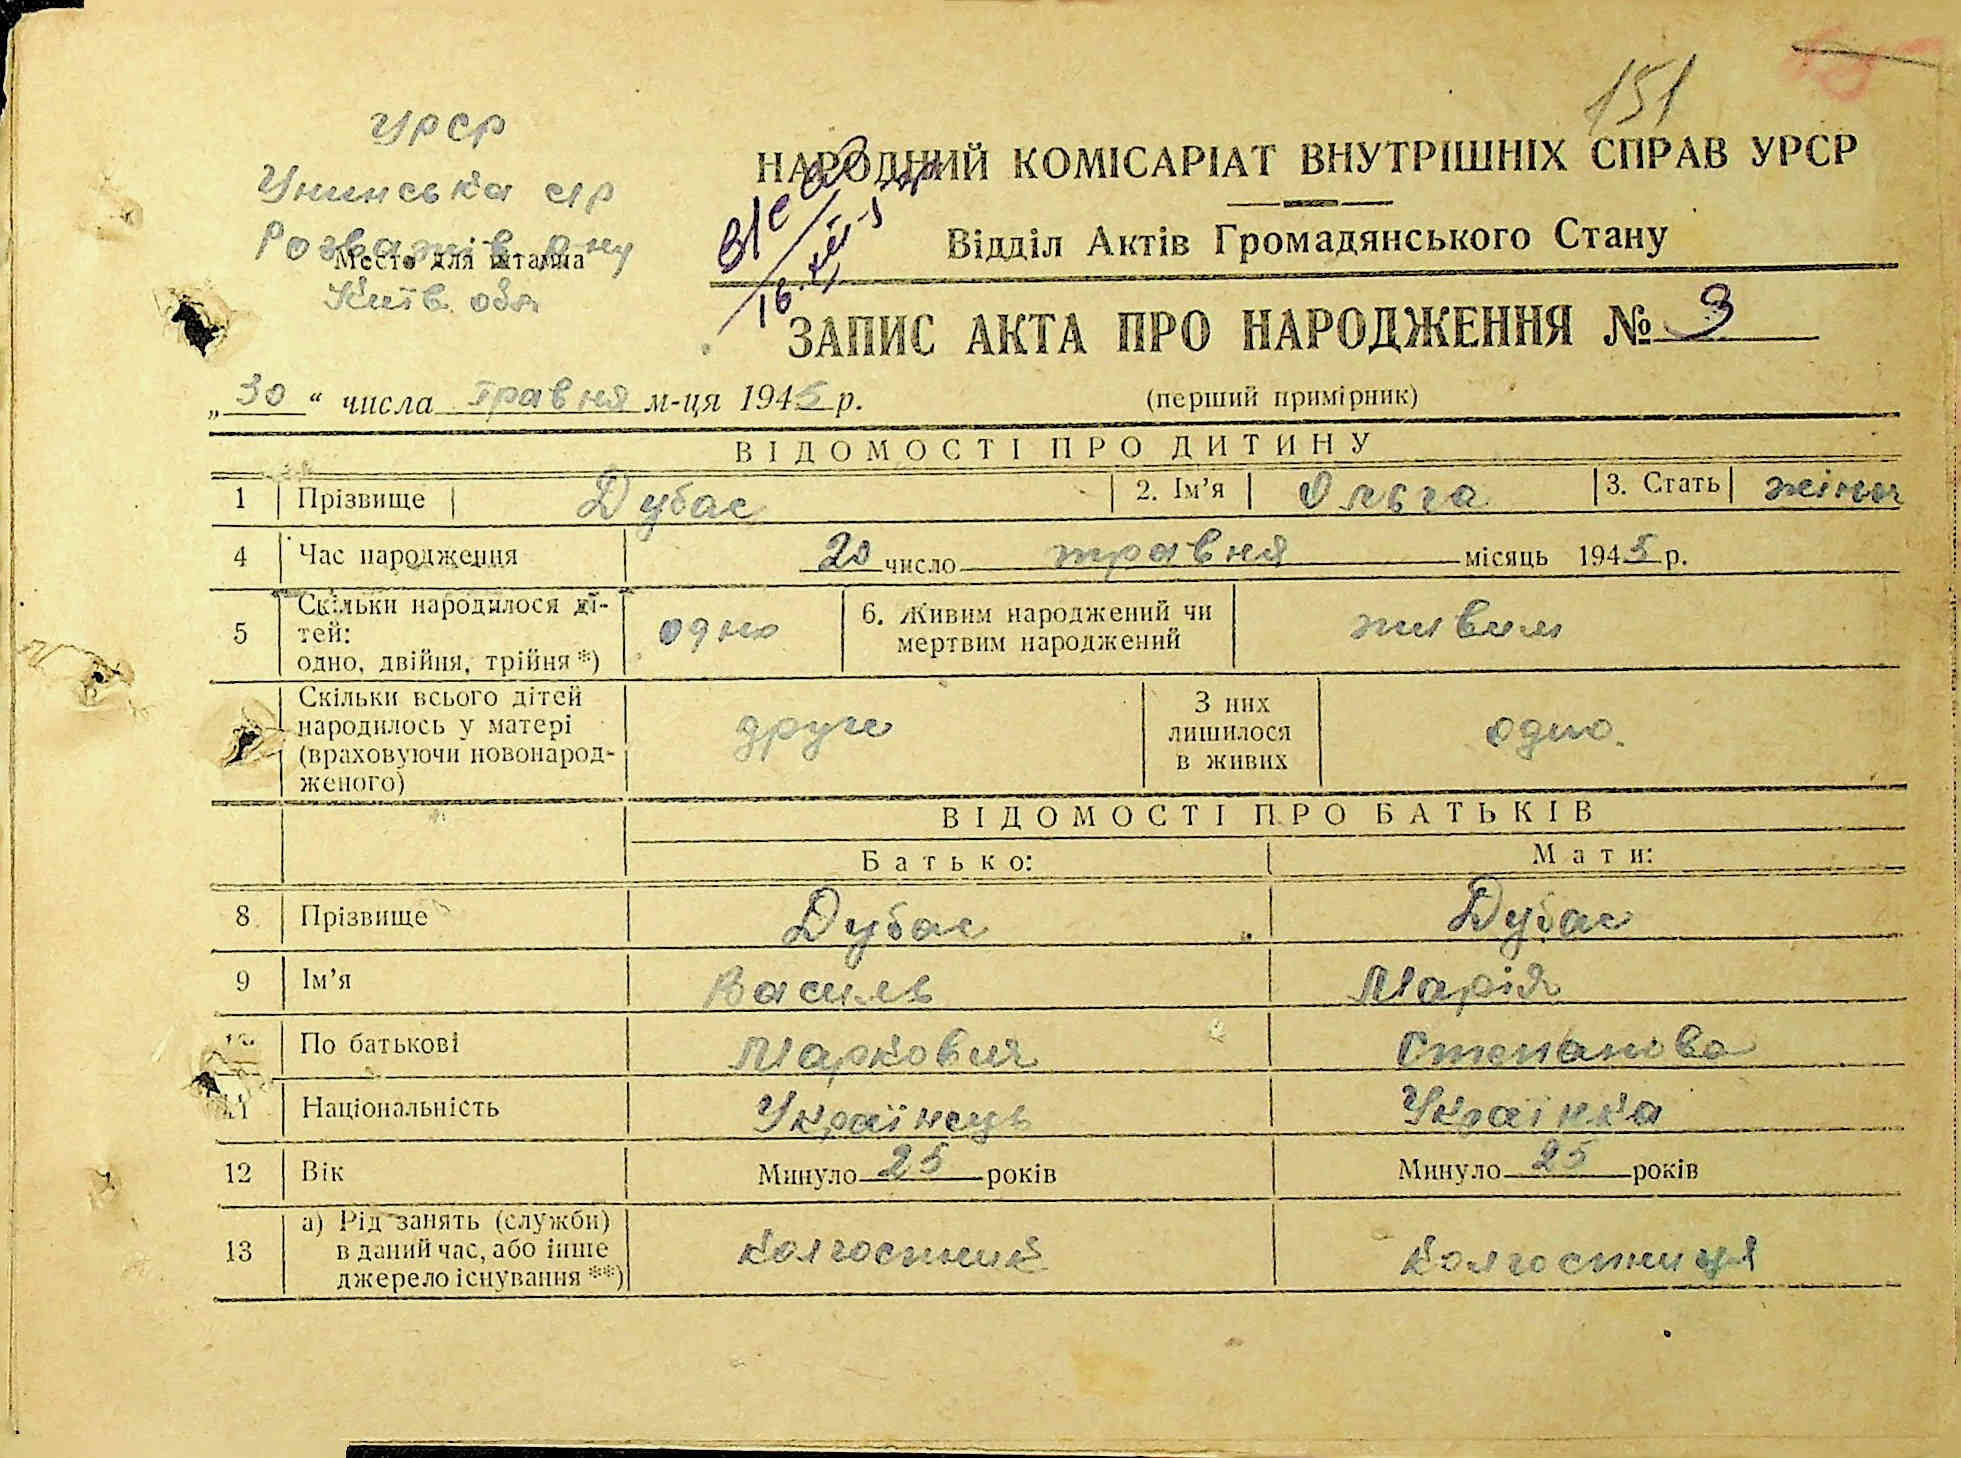 151
УРСР
Унинська с/р
Розважів. р-ну
Место для штампа
Київ. обл
НАРОДНИЙ КОМІСАРІАТ ВНУТРІШНІХ СПРАВ УРСР
Відділ Актів Громадянського Стану
ЗАПИС АКТА ПРО НАРОДЖЕННЯ № 9
„30“ числа травня м-ця 1945 р. (перший примірник)
ВІДОМОСТІ ПРО ДИТИНУ
1 Прізвище Дубас 2. Ім’я Ольга 3. Стать жіноч
4 Час народження 20 число травня місяць 1945 р.
5 Скільки народилося ді-
тей:
одно, двійня, трійня *) одно 6. Живим народжений чи
мертвим народжений живим
Скільки всього дітей
народилось у матері
(враховуючи новонарод-
женого) друге З них
лишилося
в живих одно.
ВІДОМОСТІ ПРО БАТЬКІВ
Батько: Мати:
8 Прізвище Дубас Дубас
9 Ім’я Василь Марія
10 По батькові Маркович Степанова
11 Національність Українець Українка
12 Вік Минуло 25 років Минуло 25 років
13 а) Рід занять (служби)
в даний час, або інше
джерело існування **) колгоспник колгоспниця